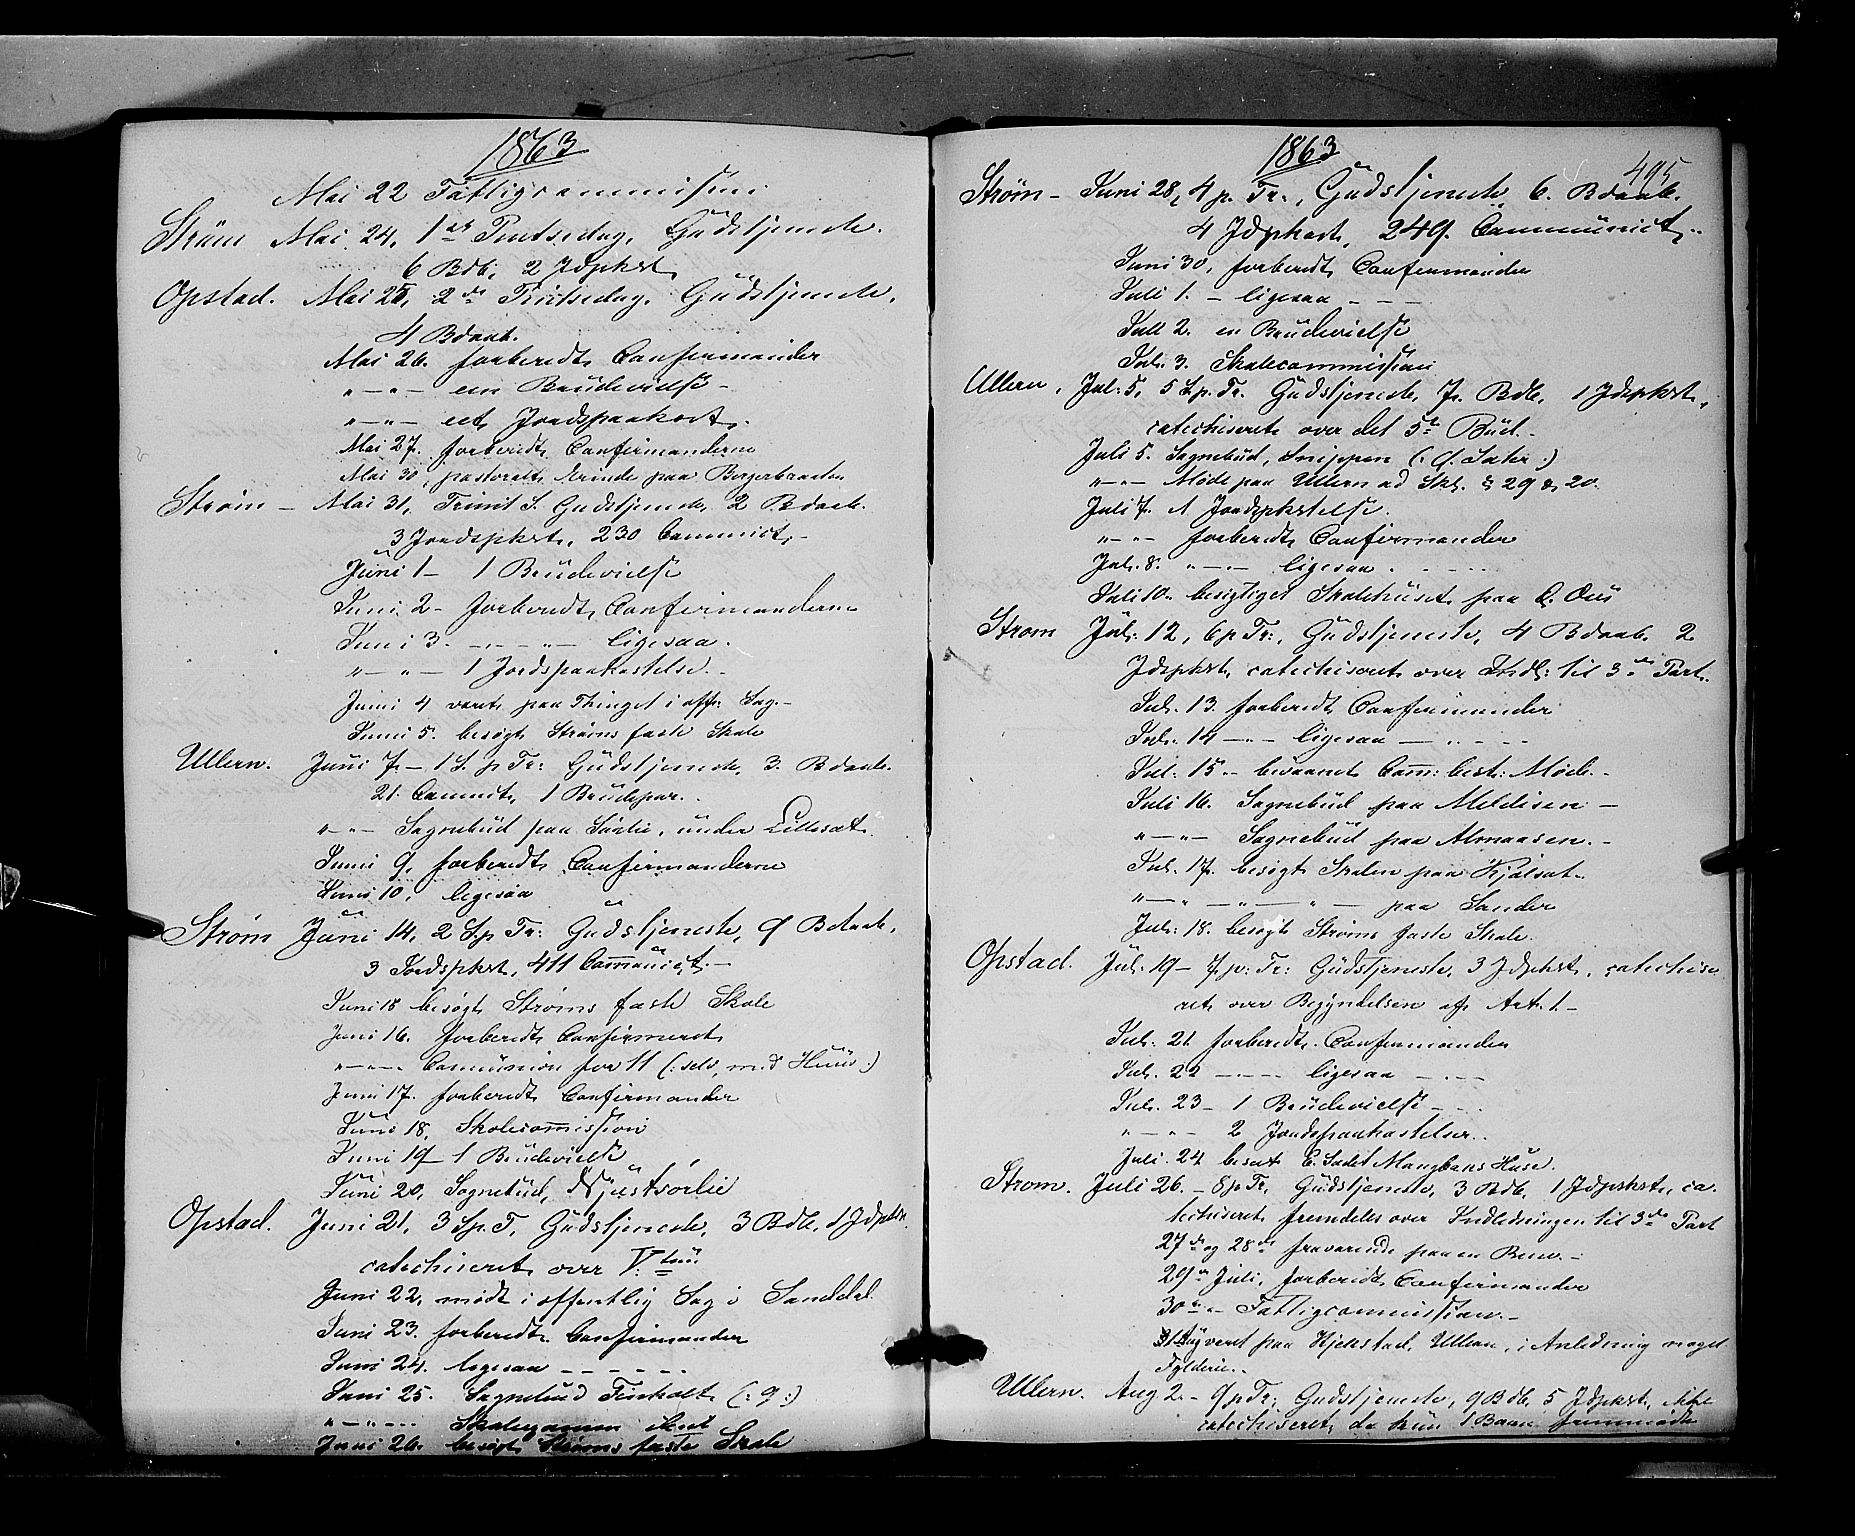 1863
Mai 22 Fattigcommission
Strøm Mai 24, 1ste Pintsedag, Gudstjeneste.
6 Bdb, 2 Jdpkst,
Opstad. Mai 25, 2den Pintsedag, Gudstjeneste,
4 Bdaab.
Mai 26. forberedt Confirmander
"—"— en Brudevielse –
"—"— et Jordspaakast.
Mai 27. forberedt Confirmanderne
Mai 30, pastoralt Ærinde paa
Strøm – Mai 31, Trinit S. Gudstjeneste, 2 Bdaab.
3 Jordspkst, 230 Commict,–
Juni 1 – 1 Brudevielse
Juni 2 – forberedt Confirmanderne
Juni 3. –"–"– ligesaa.
"—"— 1 Jordspaakastelse. –
Juni 4 været paa Thinget i off. Sag. –
Juni 5. besøgt Strøms faste Skole
Ullern. Juni 7 – 1 S. p Tr: Gudstjeneste, 3. Bdaab.
21. Commict, 1 Brudepar. –
"—"— Sognebud paa Sørlie, under Lillesæt.
Juni 9, forberedt Confirmanderne
Juni 10, ligesaa
Strøm Juni 14, 2 S p Tr: Gudstjeneste, 9 Bdaab,
3 Jordspkst, 411 Communict. –
Juni 18 besøgt Strøms faste Skole
Juni 16. forberedt Confirmerede
"—"— Communion for 11 (: selv, med Huus :)
Juni 17. forberedt Confirmander
Juni 18, Skolecommission
Juni 19 – 1 Brudevielse
Juni 20, Sognebud,
Opstad. Juni 21, 3 S p. T, Gudstjeneste, 3 Bdb, 1 Jdpkst.
catechiseret over V.
Juni 22, mødt i offentlig Sag i
Juni 23. forberedt Confirmander
Juni 24. ligesaa – – – – –
Juni 25. Sognebud (: g :)
"—"—
Juni 26. besøgt Strøms faste Skole
1863
495
Strøm – Juni 28, 4 p. Tr:, Gudstjeneste, 6. Bdaab.
4 Jdpkast, 249. Communict,–
Juni 30, forberedt Confirmander
Juli 1. – ligesaa – – –
Juli 2. en Brudevielse
Juli 3. Skolecommission
Ullern, Jul. 5, 5 S. p. Tr. Gudstjeneste 7. Bdb, 1 Jdspkst,
catechiseret over det 5te Bud. –
Juli 5. Sognebud, Snippen (: 9. :)
"—"— Møde paa Ullern ad Skl. § 29 & 20.
Juli 7. 1 Jordspkstelse.
"—"— forberedt Confirmander
Jul. 8. "—"— ligesaa. – – –
Juli 10. besigtiget Skolehuset paa
Strøm Jul: 12, 6 p Tr:, Gudstjeneste, 4 Bdaab. 2
Jdspkst, catechiseret over Indl: til 3die Part.
Jul. 13. forberedt Confirmander
Jul. 14 –"– ligesaa – – – –
Jul. 15. – Com: best: Møde. –
Juli 16. Sognebud paa –
"—"— Sognebud paa Almaasen. –
Jul. 17. besøgt Skolen paa Kjølsæt.
"—"—"—"— paa Sander
Jul: 18. besøgt Strøms faste Skole.
Opstad. Jul. 19 – 7. p: Tr: Gudstjeneste, 3 Jdpkst, catechise
ret over Begyndelsen af Art. 1. –
Jul. 21 forberedt Confirmander
Jul. 22 –"–"– ligesaa – – –
Jul. 23 – 1 Brudevielse – –
"—"— 2 Jordspaakastelser.
Juli. 24 Huse.
Strøm. Juli 26. – 8 p Tr, Gudstjeneste, 3 Bdb, 1 Jdpkst, ca-
techiseret fremdeles over Indledningen til 3die Part
27de og 28de fraværende paa en –
29de Juli, forberedt Confirmander
30te – Fattigcommission. –
31te været paa Hjelstad, Ullern, i Anledning noget
Ullern. Aug 2 – 9 p Tr, Gudstjeneste, 9 Bdb, 5 Jdpkst, ikke
catechiseret, da kun 1 Barn fremmødte